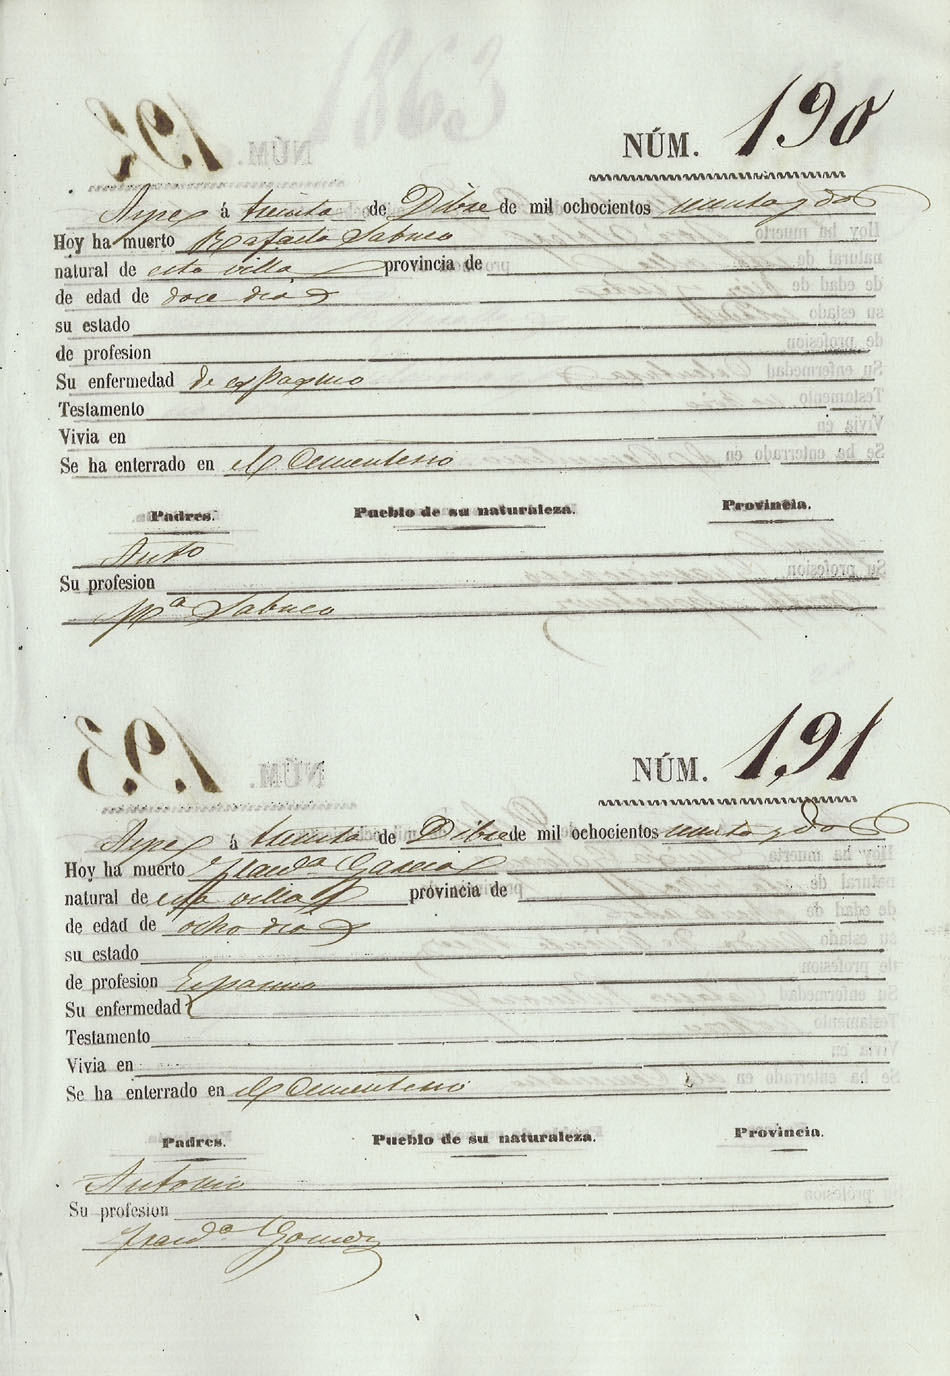 1863
NÚM. 190
Aspe á treinta de Dibre de mil ochocientos sesenta y dos
Hoy ha muerto Rafaela Sabuco
natural de esta villa provincia de
de edad de doce dias
su estado
de profesion
Su enfermedad de espasmo
Testamento
Vivia en
Se ha enterrado en el Cementerio
Padres. Pueblo de su naturaleza. Provincia.
Anto
Su profesion
Mª Sabuco
NÚM. 191
Aspe á treinta de Dibre de mil ochocientos sesenta y dos
Hoy ha muerto Francª
natural de esta villa provincia de
de edad de ocho dias
su estado
de profesion Espasmo
Su enfermedad
Testamento
Vivia en
Se ha enterrado en el Cementerio
Padres. Pueblo de su naturaleza. Provincia.
Antonio
Su profesion
Francª Gomez